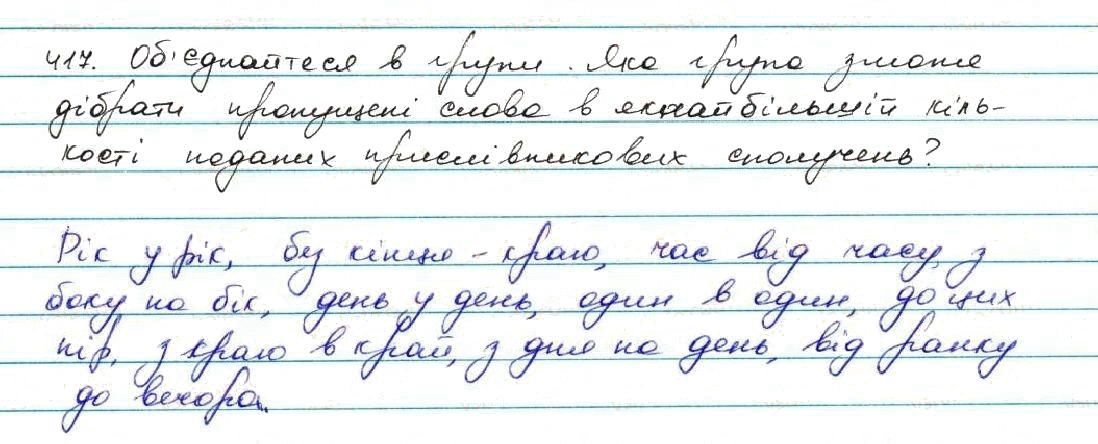 417. Об'єднайтеся в групи. Яка група зможе
дібрати пропущені слова в якнайбільшій кіль-
кості поданих прислівникових сполучень?
Рік у рік, без кінця-краю, час від часу, з
боку на бік, день у день, один в один, до цих
пір, з краю в край, з дня на день, від ранку
до вечора.